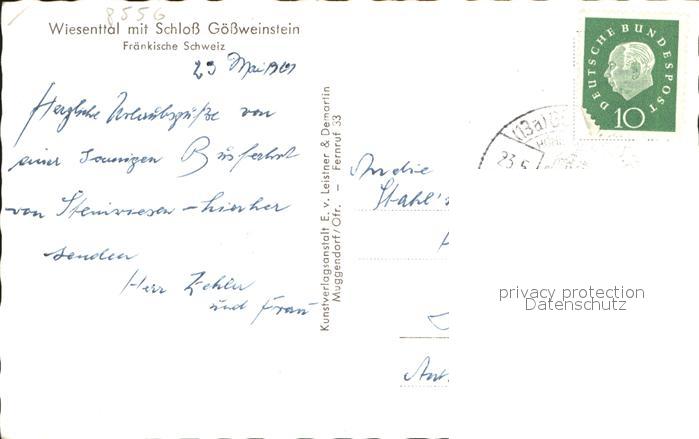 8556
Wiesenttal mit Schloß Gößweinstein
Fränkische Schweiz
23 Mai 1961
Herzliche Urlaubsgrüße von
einer sonnigen Busfahrt
von Steinwiesen – hierher
senden
Herr Zehler
und Frau
Kunstverlagsanstalt E. v. Leistner & Demartin
Muggendorf/Ofr. – Fernruf 33
An die
Stahl's
DEUTSCHE BUNDESPOST
10
(13a)
23.5
privacy protection
Datenschutz